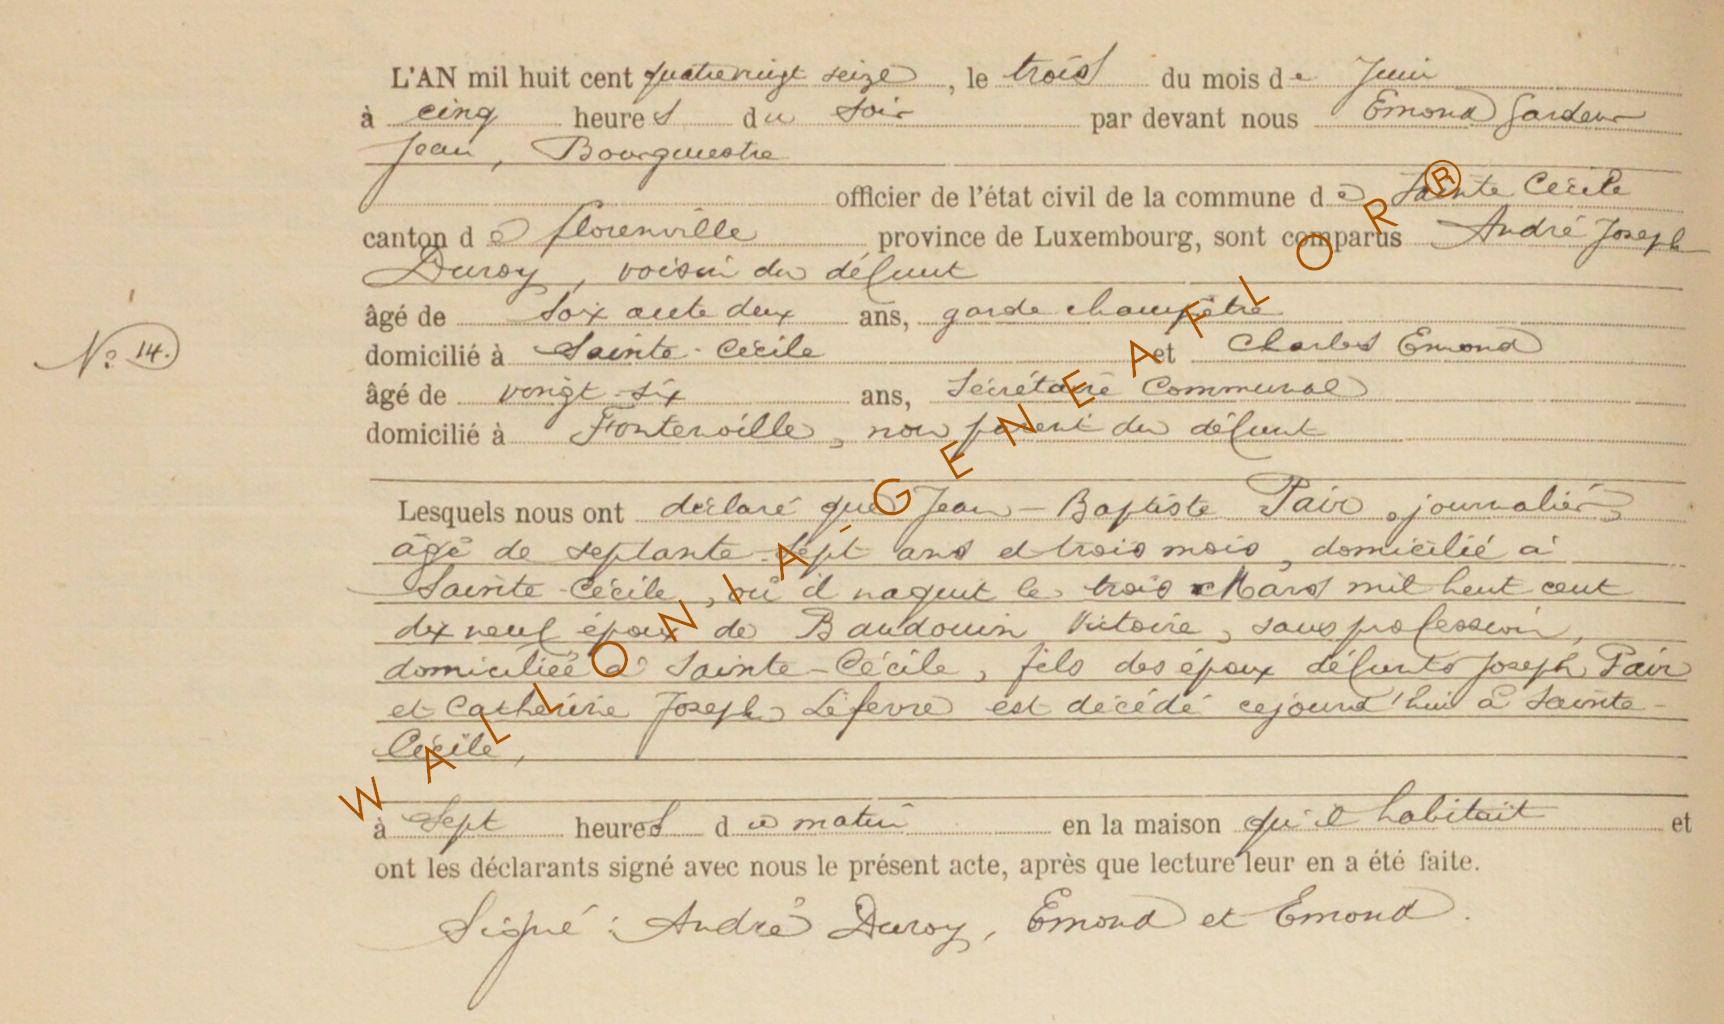 L'AN mil huit cent quatrevingt seize, le trois du mois de Juin
à cinq heures du soir par devant nous Emond Gardeur
Jean, Bourgmestre
officier de l'état civil de la commune de Sainte Cécile
canton de florenville province de Luxembourg, sont comparus André Joseph
Duroy, voisin du défunt
âgé de Soixante deux ans, garde champêtre
domicilié à Sainte-Cécile et Charles Emond
N° 14.
âgé de vingt-six ans, Secrétaire Communal
domicilié à Fontenoille, non parent du défunt
Lesquels nous ont déclaré que Jean-Baptiste Pair, journalier,
âgé de septante-sept ans et trois mois, domicilié à
Sainte-Cécile, où il naquit le trois Mars mil huit cent
dix neuf époux de Baudouin Victoire, sans profession,
domiciliée à Sainte-Cécile, fils des époux défunts Joseph Pair
et Cathérine Joseph Lefevre est décédé cejourd'hui à Sainte-
Cécile,
à Sept heures du matin en la maison qu'il habitait et
ont les déclarants signé avec nous le présent acte, après que lecture leur en a été faite.
Signé : André Duroy, Emond et Emond.
WALLONIA-GENEAFLOR®